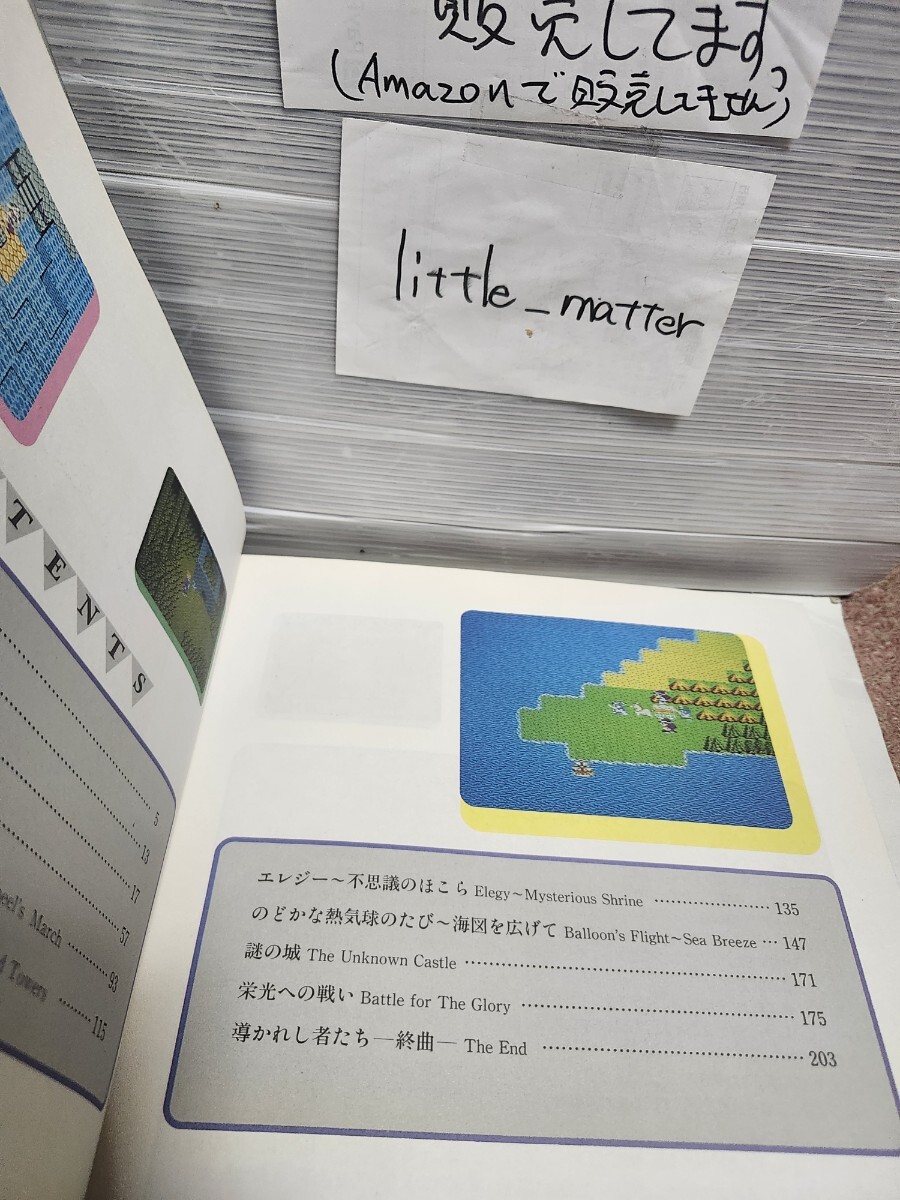 販売してます。
(Amazonで販売してません)
little_matter
TENTS
5
13
17
57
eel's March 93
d Towers 115
エレジー〜不思議のほこら Elegy~Mysterious Shrine 135
のどかな熱気球のたび〜海図を広げて Balloon's Flight~Sea Breeze 147
謎の城 The Unknown Castle 171
栄光への戦い Battle for The Glory 175
導かれし者たち—終曲— The End 203